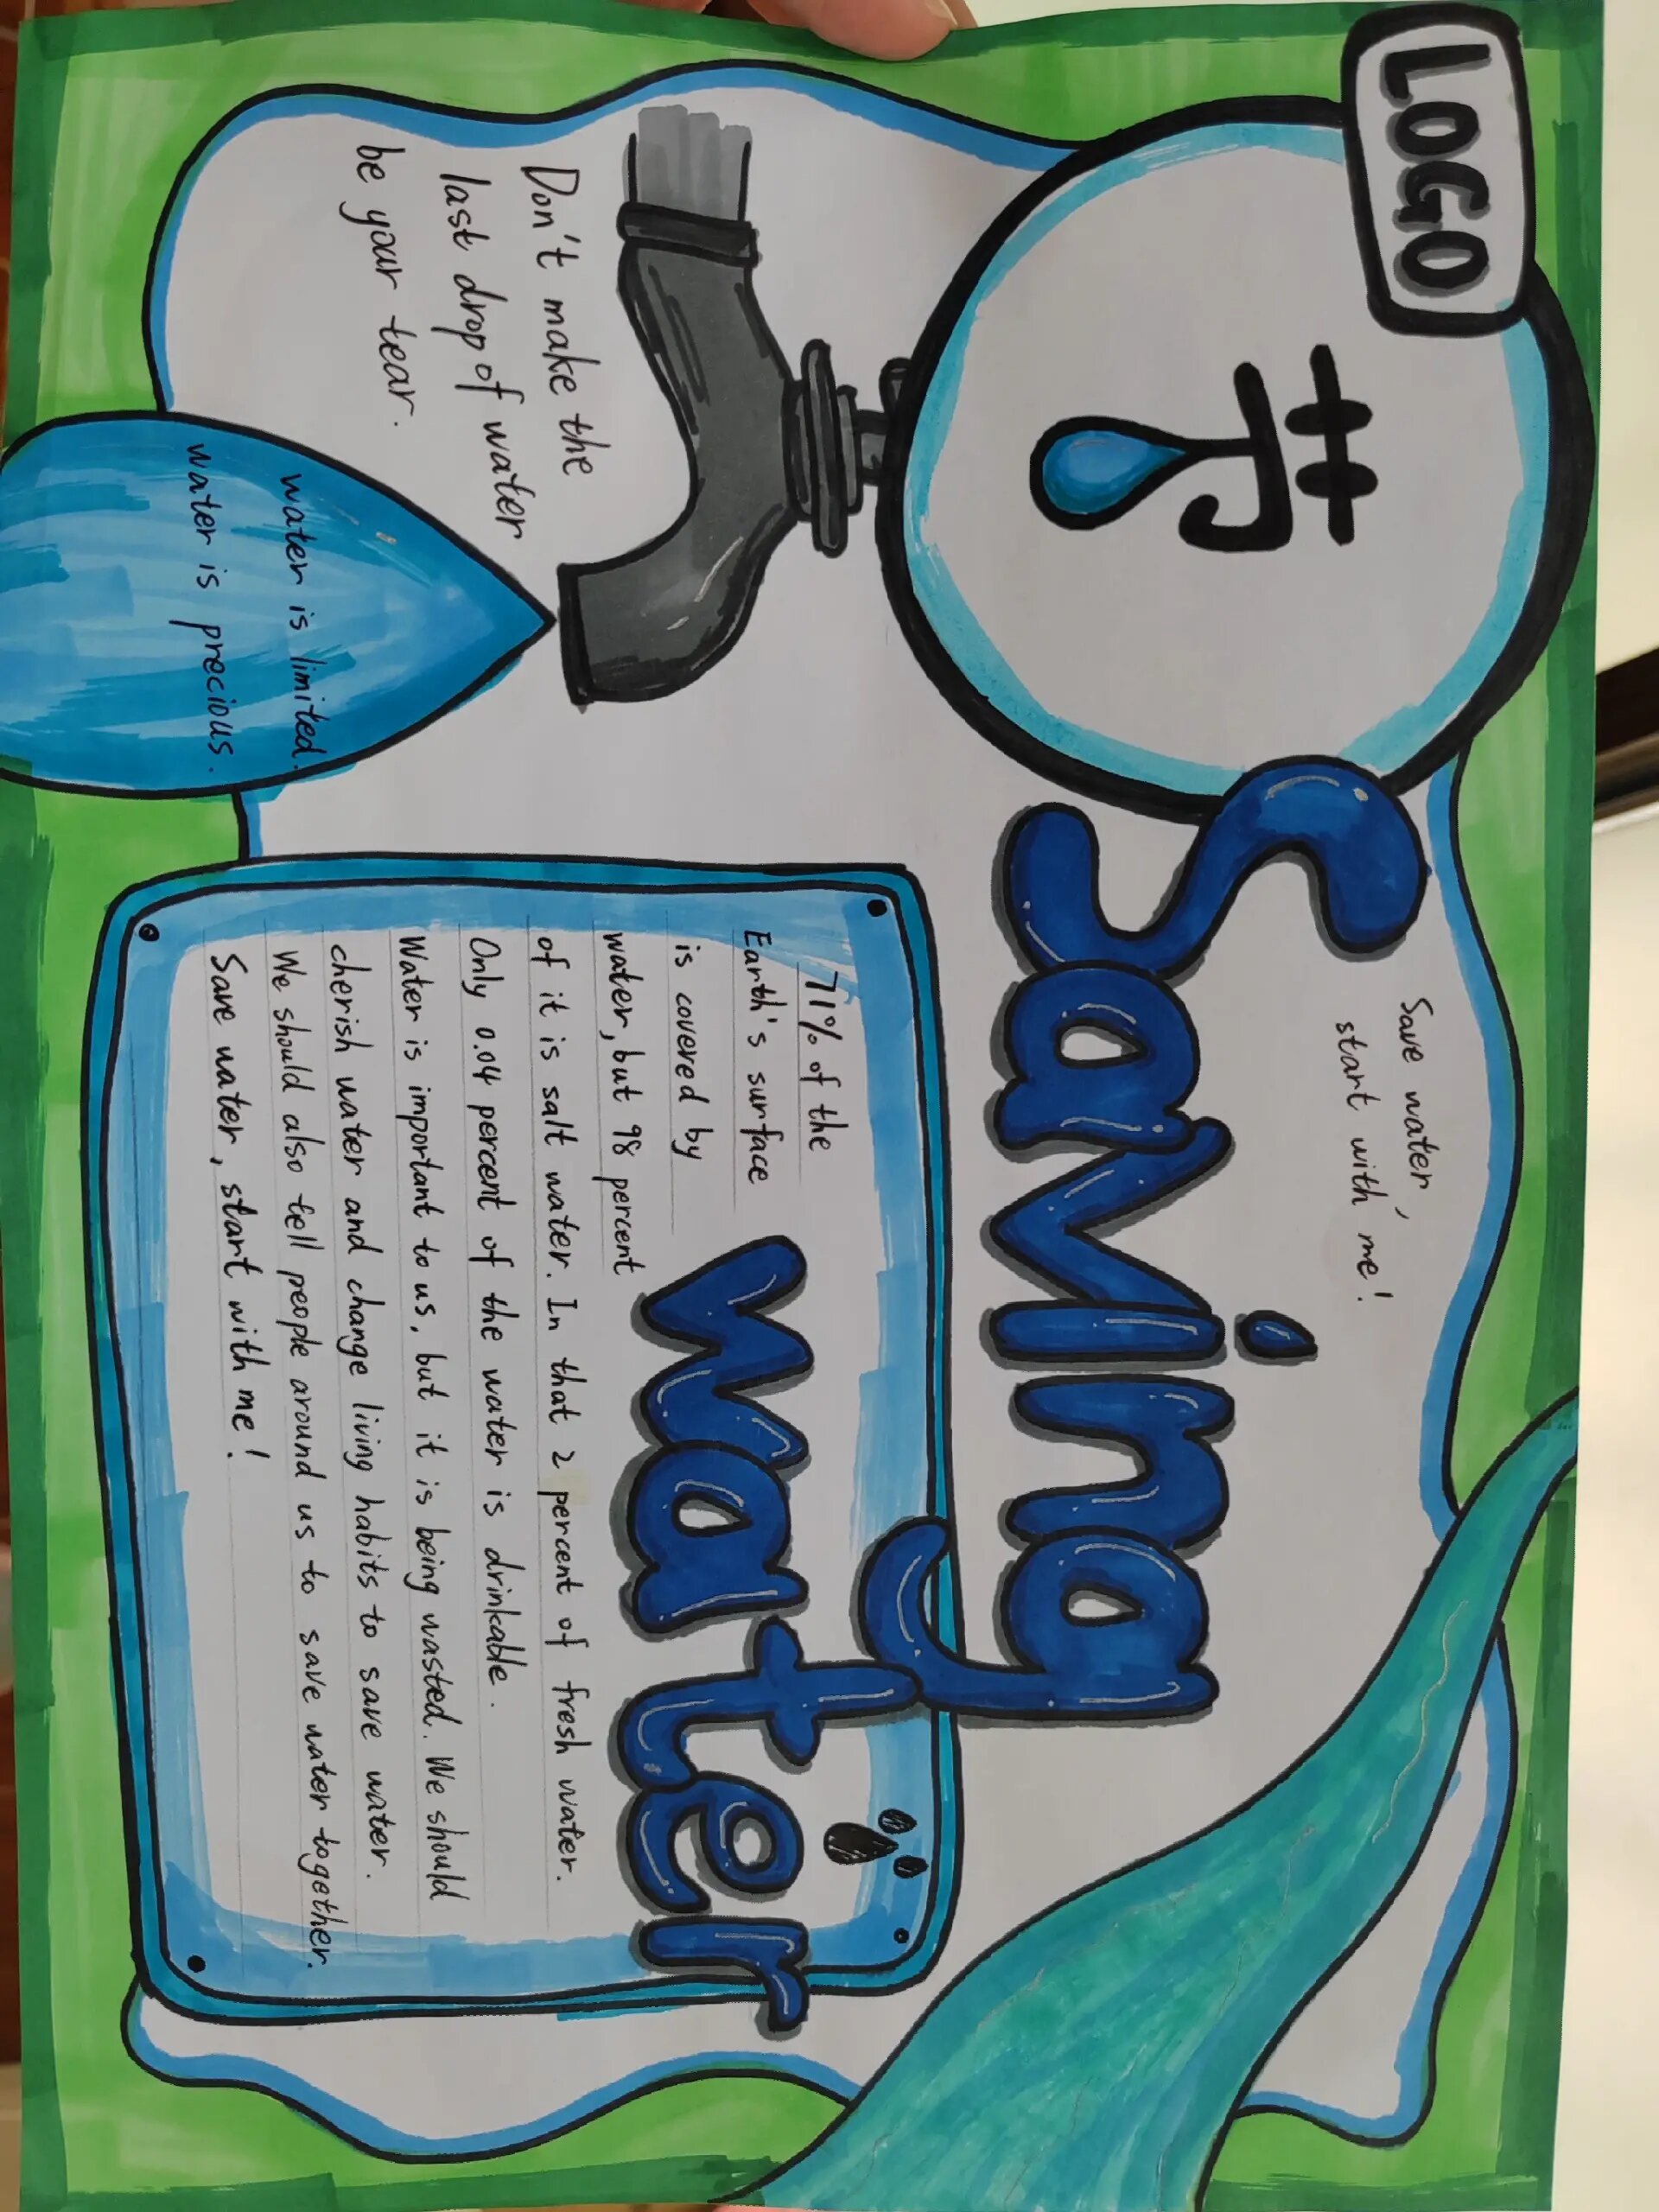 LOGO
节
Save water,
start with me!
Saving
water
Don't make the
last drop of water
be your tear.
water is limited.
water is precious.
71% of the
Earth's surface
is covered by
water, but 98 percent
of it is salt water. In that 2 percent of fresh water.
Only 0.04 percent of the water is drinkable.
Water is important to us, but it is being wasted. We should
cherish water and change living habits to save water.
We should also tell people around us to save water together.
Save water, start with me!